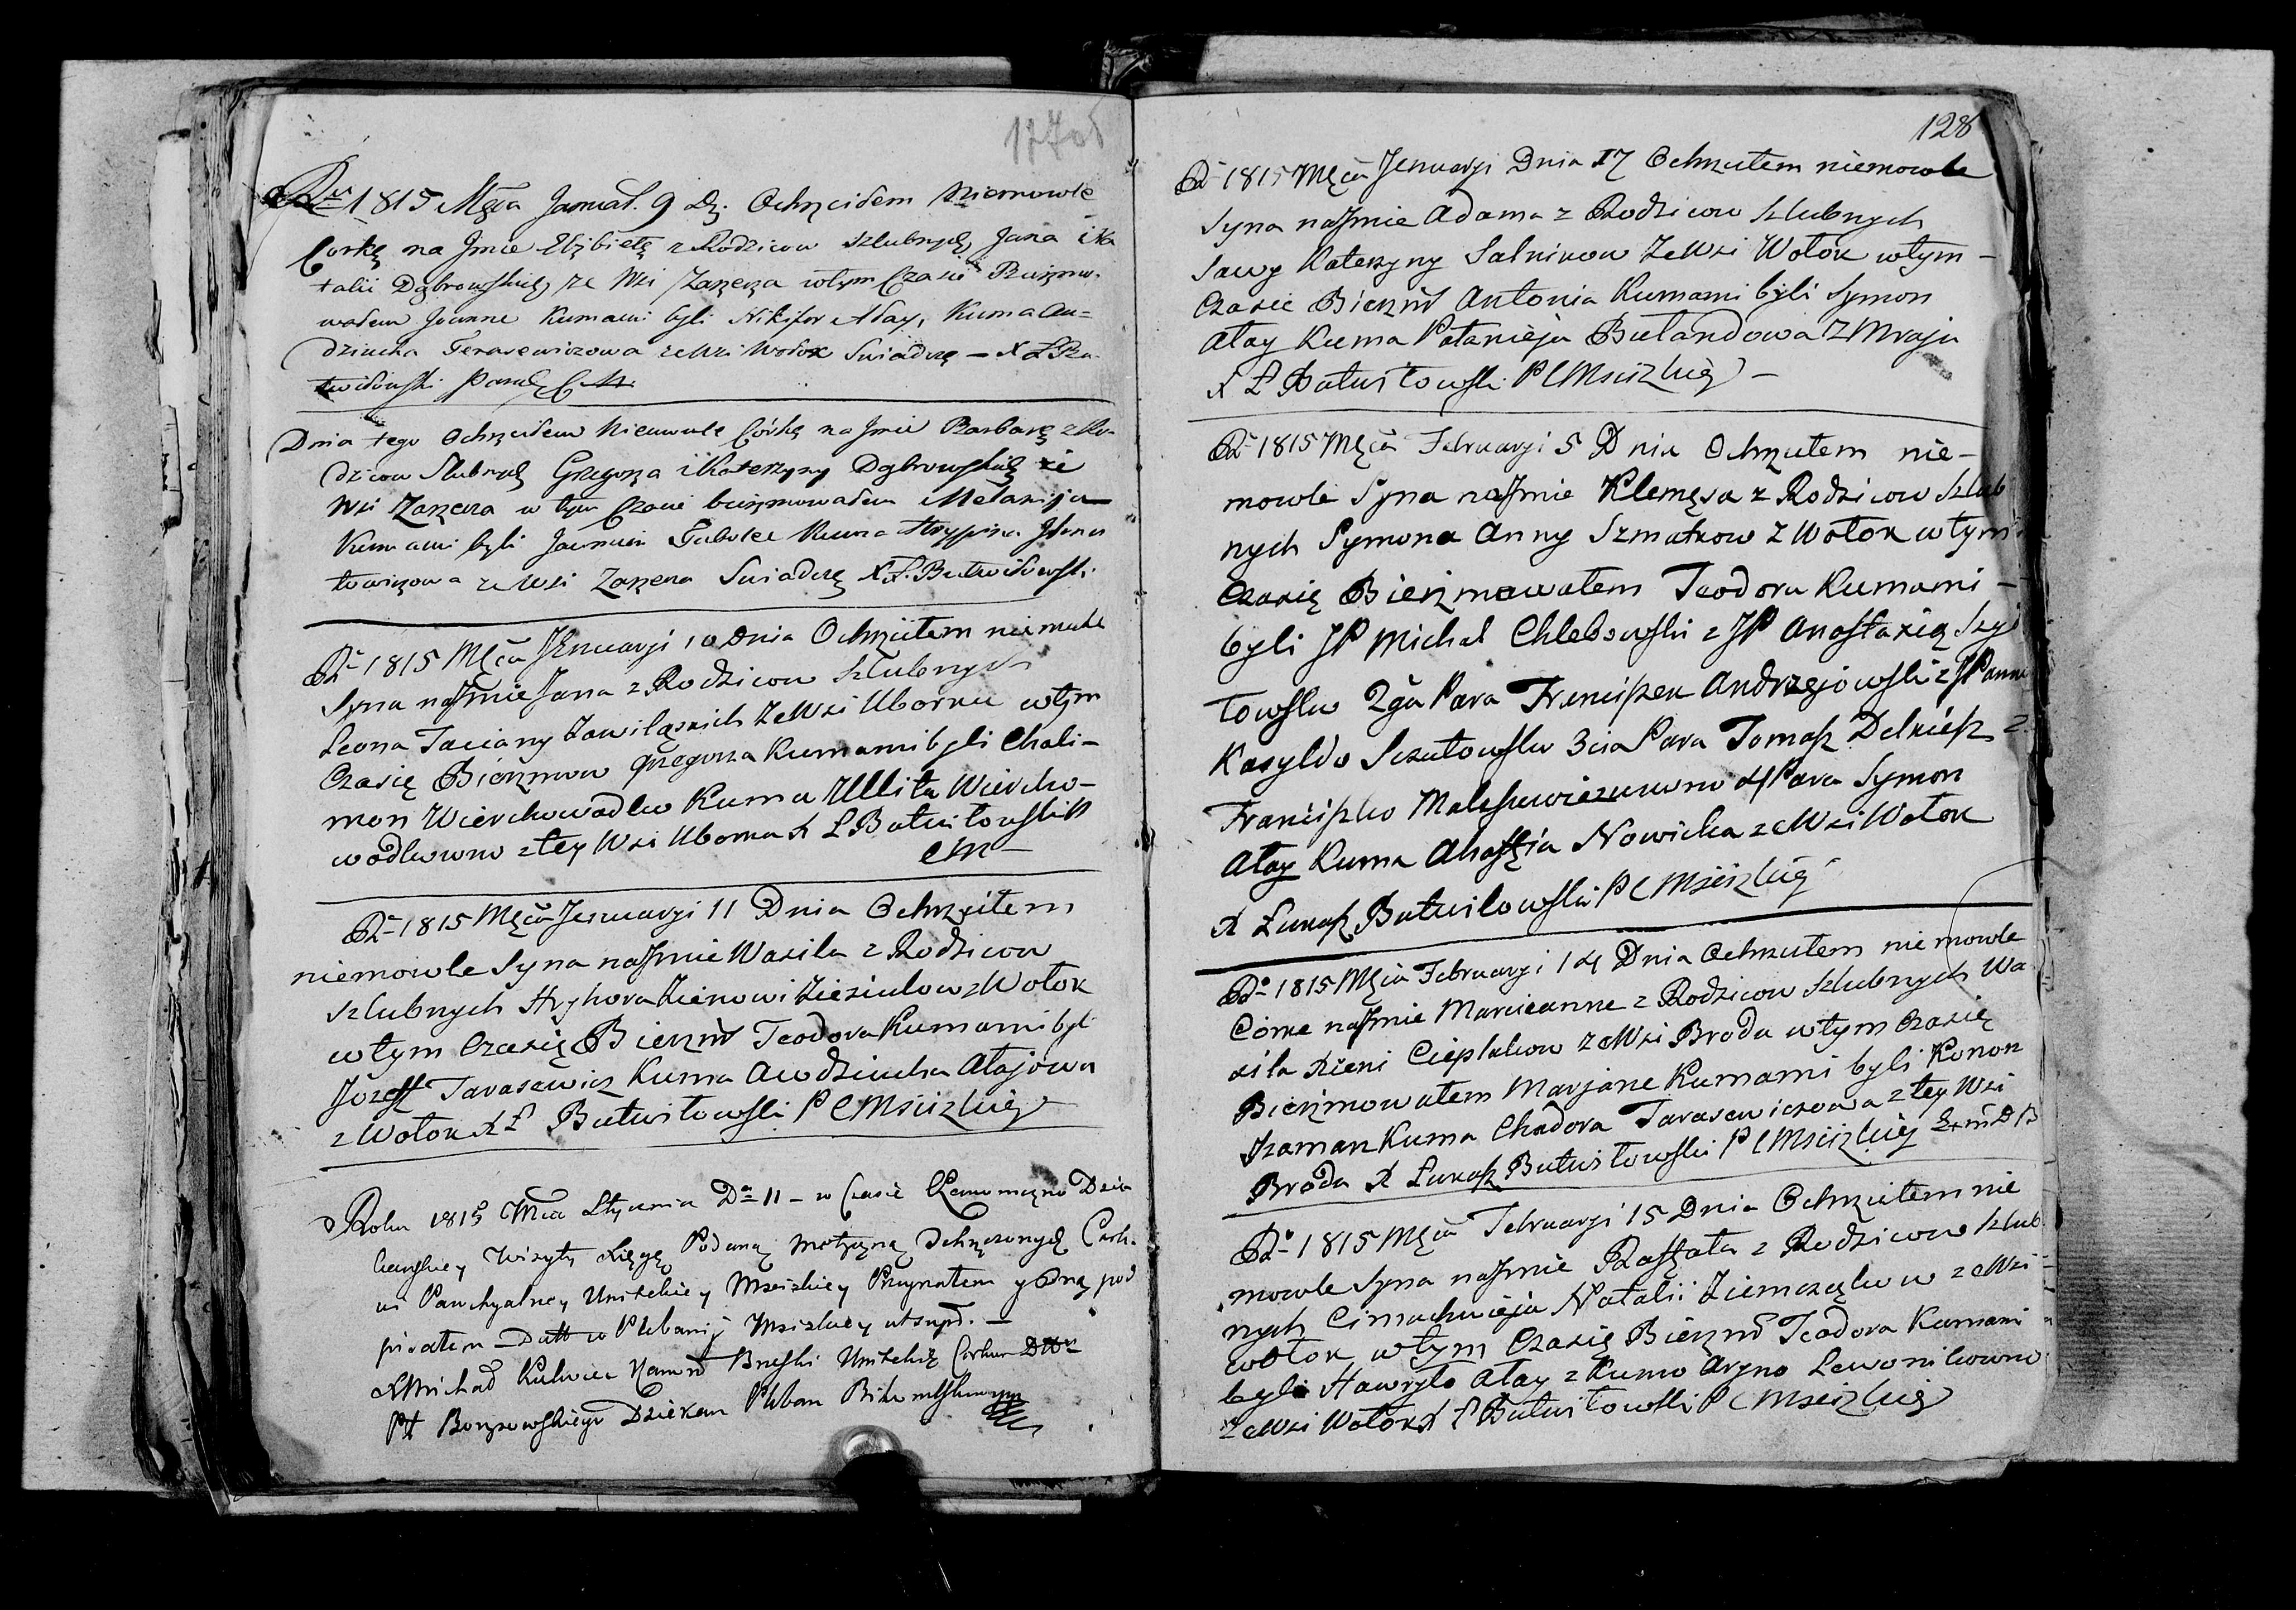 1815 Męca Januar. 9 Dz. Ochrzciłem Niemowle
Corkę na Jmie Elżbietę z Rodzicow szlubnych Jana i Na
talii Dąbrowskich ze Wsi Zarzecza wtym Czasie Bierzmo-
wałem Joannę Kumami byli Nikifor Ałay, Kuma Au-
dziucha Terasewiczowa ze Wsi Wołok Swiadczę – X Ł Bu
twiłowski
Dnia tego Ochrzciłem Niemowle Córkę na Jmie Barbarę z Ro-
dzicow Slubnych Grzegorza i Katerzyny Dąbrowskich ze
Wsi Zarzecza w tym Czasie bierzmowałem Melaniją
Kumami byli Kuma Ahrypina
towiczowa ze Wsi Zarzecza Swiadczę X Ł. Butwiłowski
R 1815 Męca Jenuaryi 10 Dnia Ochrzciłem niemowle
Syna na Jmie Jana z Rodzicow szlubnych
Leona Taciany ze Wsi Uborku wtym
Czasię Bierzmow Grzegorza Kumami byli Chali-
mon Wierchowodko Kuma Ullita Wiercho-
wodkowno z tey Wsi Uborka X Ł Butwiłowski P
CM
R 1815 Męca Jenuaryi 11 Dnia Ochrzciłem
niemowle Syna na Jmie Wasila z Rodzicow
szlubnych Hryhora Zienowi z Wołok
wtym Czasię Bierzm Teodora Kumami byli
Jozeff Tarasewicz Kuma Awdziucha Ałajowa
z Wołok X Ł Butwiłowski P C Msciżkiey
Roku 1815 Mca Stycznia D 11 – w Czasie Dzie
kańskiey Wizyty Xięgę Podaną metryczną Ochrzczonych Cerk-
wi Parochyalney Unitskiey Msciżkiey Przeyrzałem y oną pod
pisałem – Datt w Plebanij Msciżkiey ut supr. –
X Michał Unitskich
Pt Borysowskiego Dziekan Pleban
128
R 1815 Męca Jenuaryi Dnia 17 Ochrzciłem niemowle
Syna na Jmie Adama z Rodzicow szlubnych
Sawy Kateryny Salnikow Ze Wsi Wołok wtym –
Czasie Bierzm Antonia Kumami byli Symon
Ałay Kuma Pałanieja Bułandowa Z Mraju
X Ł Butwiłowski P C Msciżkiey –
R 1815 Męca Februaryi 5 Dnia Ochrzciłem nie-
mowle Syna na Jmie Klemęsa z Rodzicow Szlub
nych Symona Anny Szmatkow Z Wołok wtym
Czasię Bierzmowałem Teodora Kumami –
byli JP Michał Chlebowski z JP Anastazią Szy
towsku 2ga Para Franciszek Andrzejowski z JPanną
Kasyldo Szutowsku 3cia Para Tomasz z
Franciszko 4 Para Symon
Ałay Kuma Nowicka ze Wsi Wołok
X Łukasz Butwiłowski P C Msciżkiey
R 1815 Męca Februaryi 14 Dnia Ochrzciłem niemowle
Córke na Jmie Marcieanne z Rodzicow szlubnych Wa
sila Xieni Cieplakow ze Wsi Broda wtym Czasię
Bierzmowałem Marjane Kumami byli Konon
Kuma Chadora Tarasewiczowa z tey Wsi
Broda X Łukasz Butwiłowski P C Msciżkiey
R 1815 Męca Februaryi 15 Dnia Ochrzciłem nie
mowle Syna na Jmie z Rodzicow szlub
nych Cimachwieja Natalii ze Wsi –
Wołok wtym Czasię Bierzm Teodora Kumami
byli Hawryło Ałay z Kumo Aryno Lewonikowno
ze Wsi Wołok X Ł Butwiłowski P C Msciżkiey